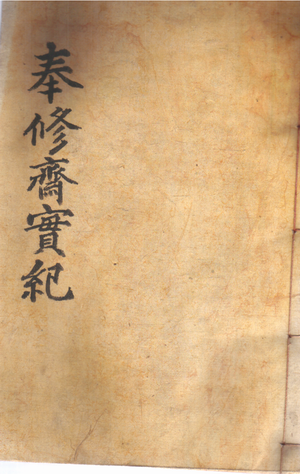 奉修齋實紀